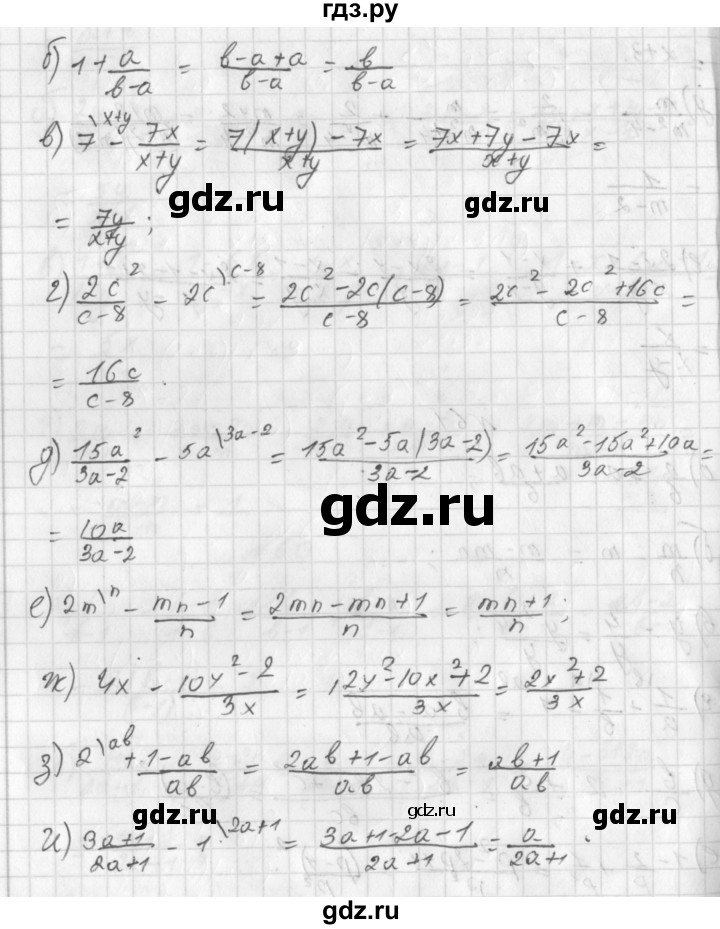 гдз.ру
б) 1 + a/(b-a) = (b-a+a)/(b-a) = b/(b-a)
в) 7\x+y - 7x/(x+y) = (7(x+y)-7x)/(x+y) = (7x+7y-7x)/(x+y) =
gdz.ru gdz.ru
= 7y/(x+y);
г) 2c²/(c-8) - 2c\c-8 = (2c²-2c(c-8))/(c-8) = (2c²-2c²+16c)/(c-8) =
= 16c/(c-8).
д) 15a²/(3a-2) - 5a\3a-2 = (15a²-5a(3a-2))/(3a-2) = (15a²-15a²+10a)/(3a-2) =
gdz.ru
= 10a/(3a-2)
е) 2m\n - (mn-1)/n = (2mn-mn+1)/n = (mn+1)/n;
ж) 4x - (10y²-2)/3x = (12y²-10x²+2)/3x = (2x²+2)/3x
з) 2\ab + (1-ab)/ab = (2ab+1-ab)/ab = (ab+1)/ab
gdz.ru gdz.ru gdz.ru
и) (3a+1)/(2a+1) - 1\2a+1 = (3a+1-2a-1)/(2a+1) = a/(2a+1).
gdz.ru